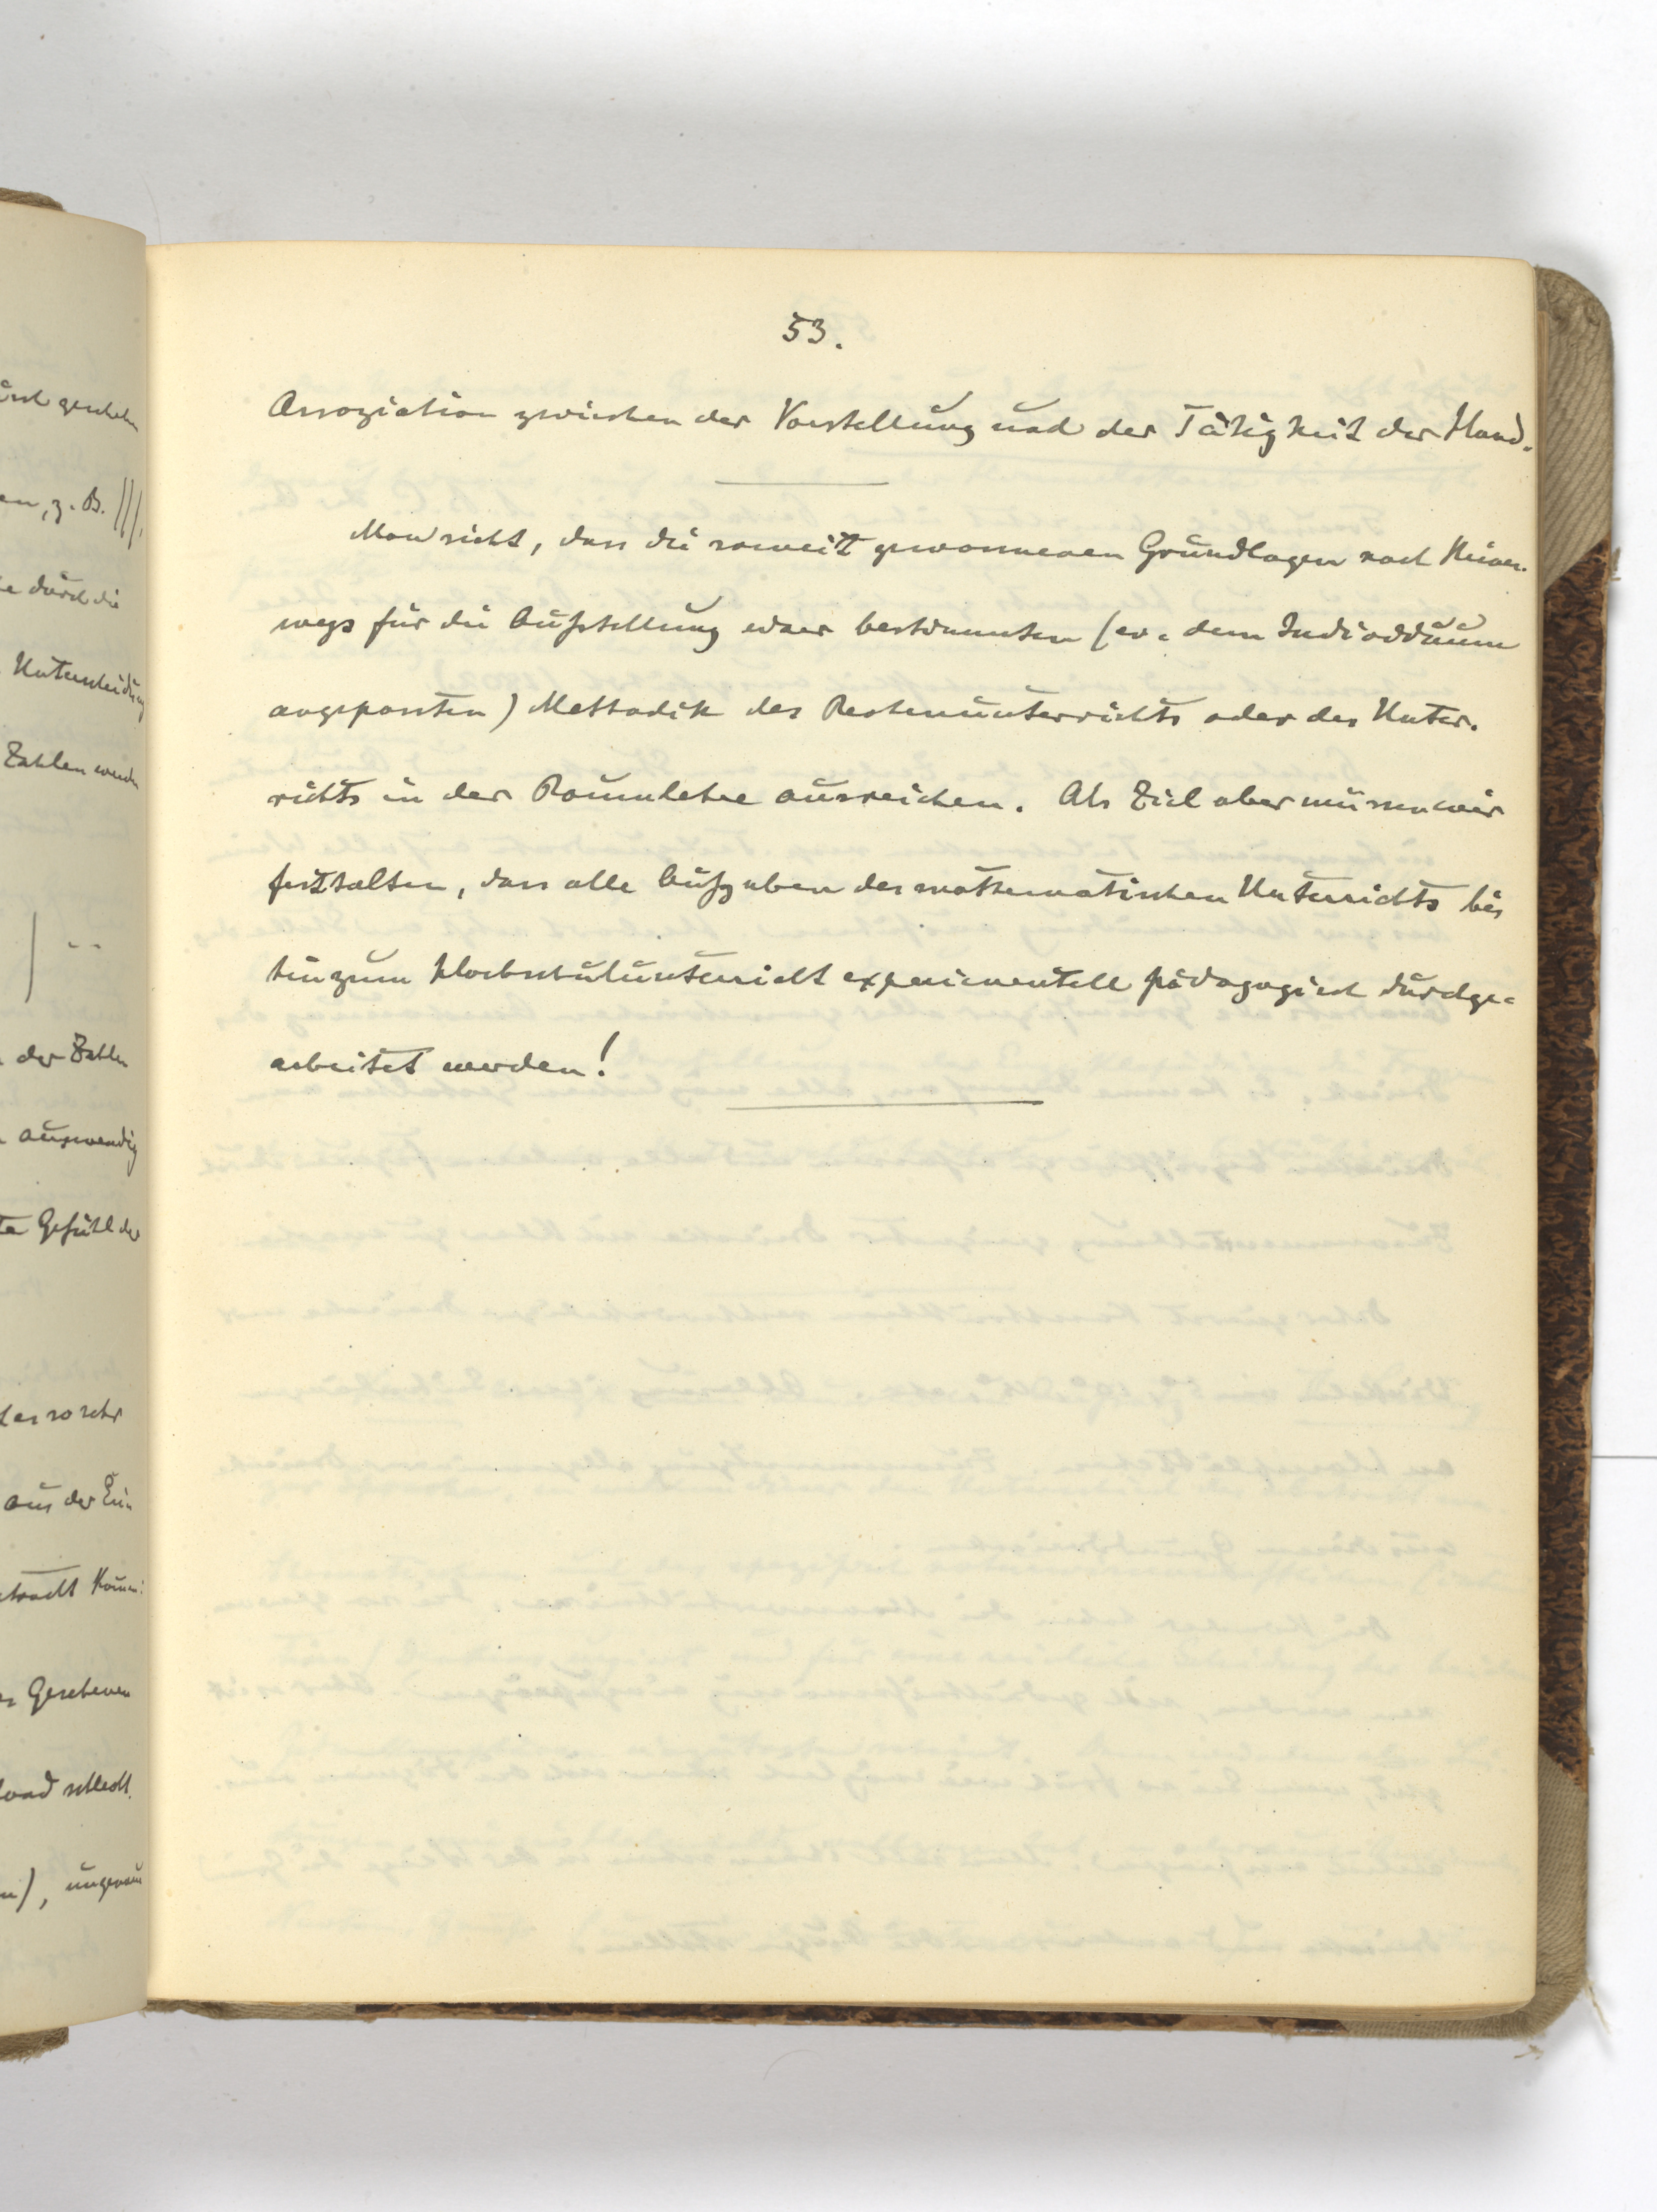 53.
Assoziation zwischen der Vorstellung und der Tätigkeit der Hand.
Man sieht, dass die soweit gewonnenen Grundlagen noch keines-
wegs für die Aufstellung einer bestimmten (ev. dem Individuum
angepassten) Methodik des Rechenunterrichts oder des Unter-
richts in der Raumlehre ausreichen. Als Ziel aber müssen wir
festhalten, dass alle Aufgaben des mathematischen Unterrichts bis
hin zum Hochschulunterricht experimentell pädagogisch durchge-
arbeitet werden!
en, z. B. |||.
durch die
Unterscheidung
Zahlen werden
der Zahlen
auswendig
Gefühl der
es so sehr
aus der Ein
Gesehenen
schlecht.
ungenau